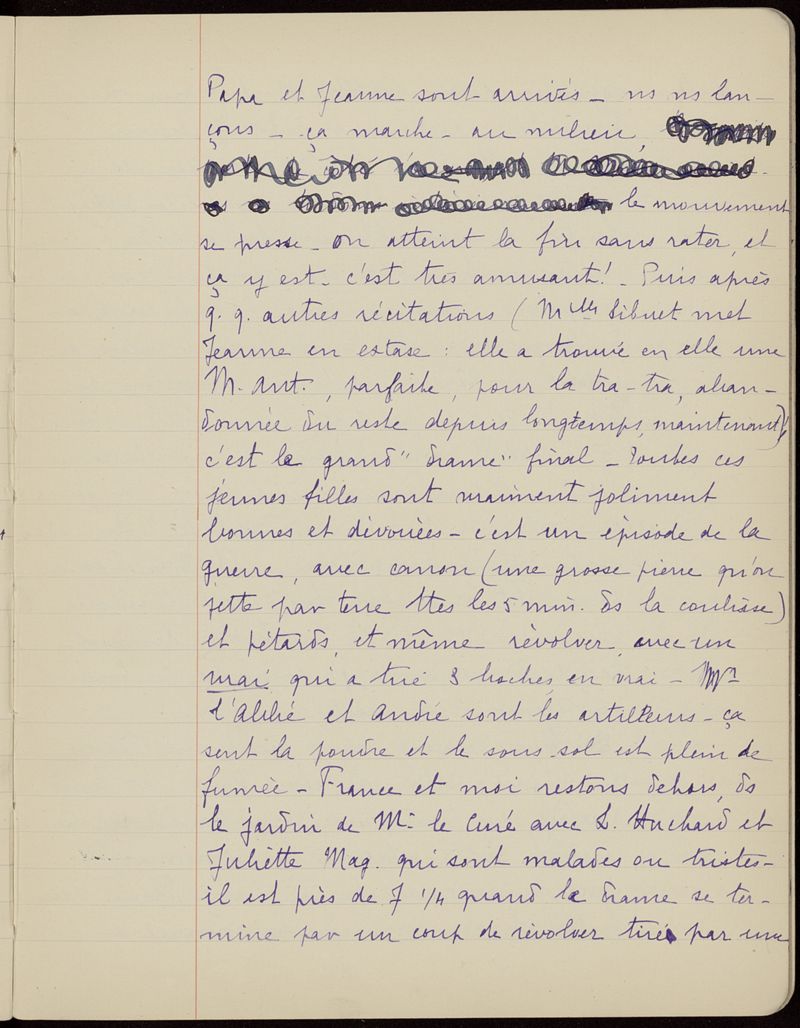 Papa et Jeanne sont arrivés – ns ns lan-
çons – ça marche – au milieu,
le mouvement
se presse – on atteint la fin sans rater, et
ça y est – c'est très amusant! – Puis après
q. q. autres récitations (Mlle Sibuet met
Jeanne en extase : elle a trouvé en elle une
M. Ant., parfaite, pour la tra-tra, aban-
donnée du reste depuis longtemps, maintenant)
c'est le grand "drame" final – Toutes ces
jeunes filles sont vraiment joliment
bonnes et dévouées – c'est un épisode de la
guerre, avec canon (une grosse pierre qu'on
jette par terre ttes les 5 min. ds la coulisse)
et pétards, et même révolver, avec un
vrai qui a tué 3 boches, en vrai – Mr
l'Abbé et André sont les artilleurs – ça
sent la poudre et le sous-sol est plein de
fumée – France et moi restons dehors, ds
le jardin de Mr le Curé avec S. Huchard et
Juliette Mag. qui sont malades ou tristes –
il est près de 7 1/4 quand le drame se ter-
mine par un coup de révolver tiré par une